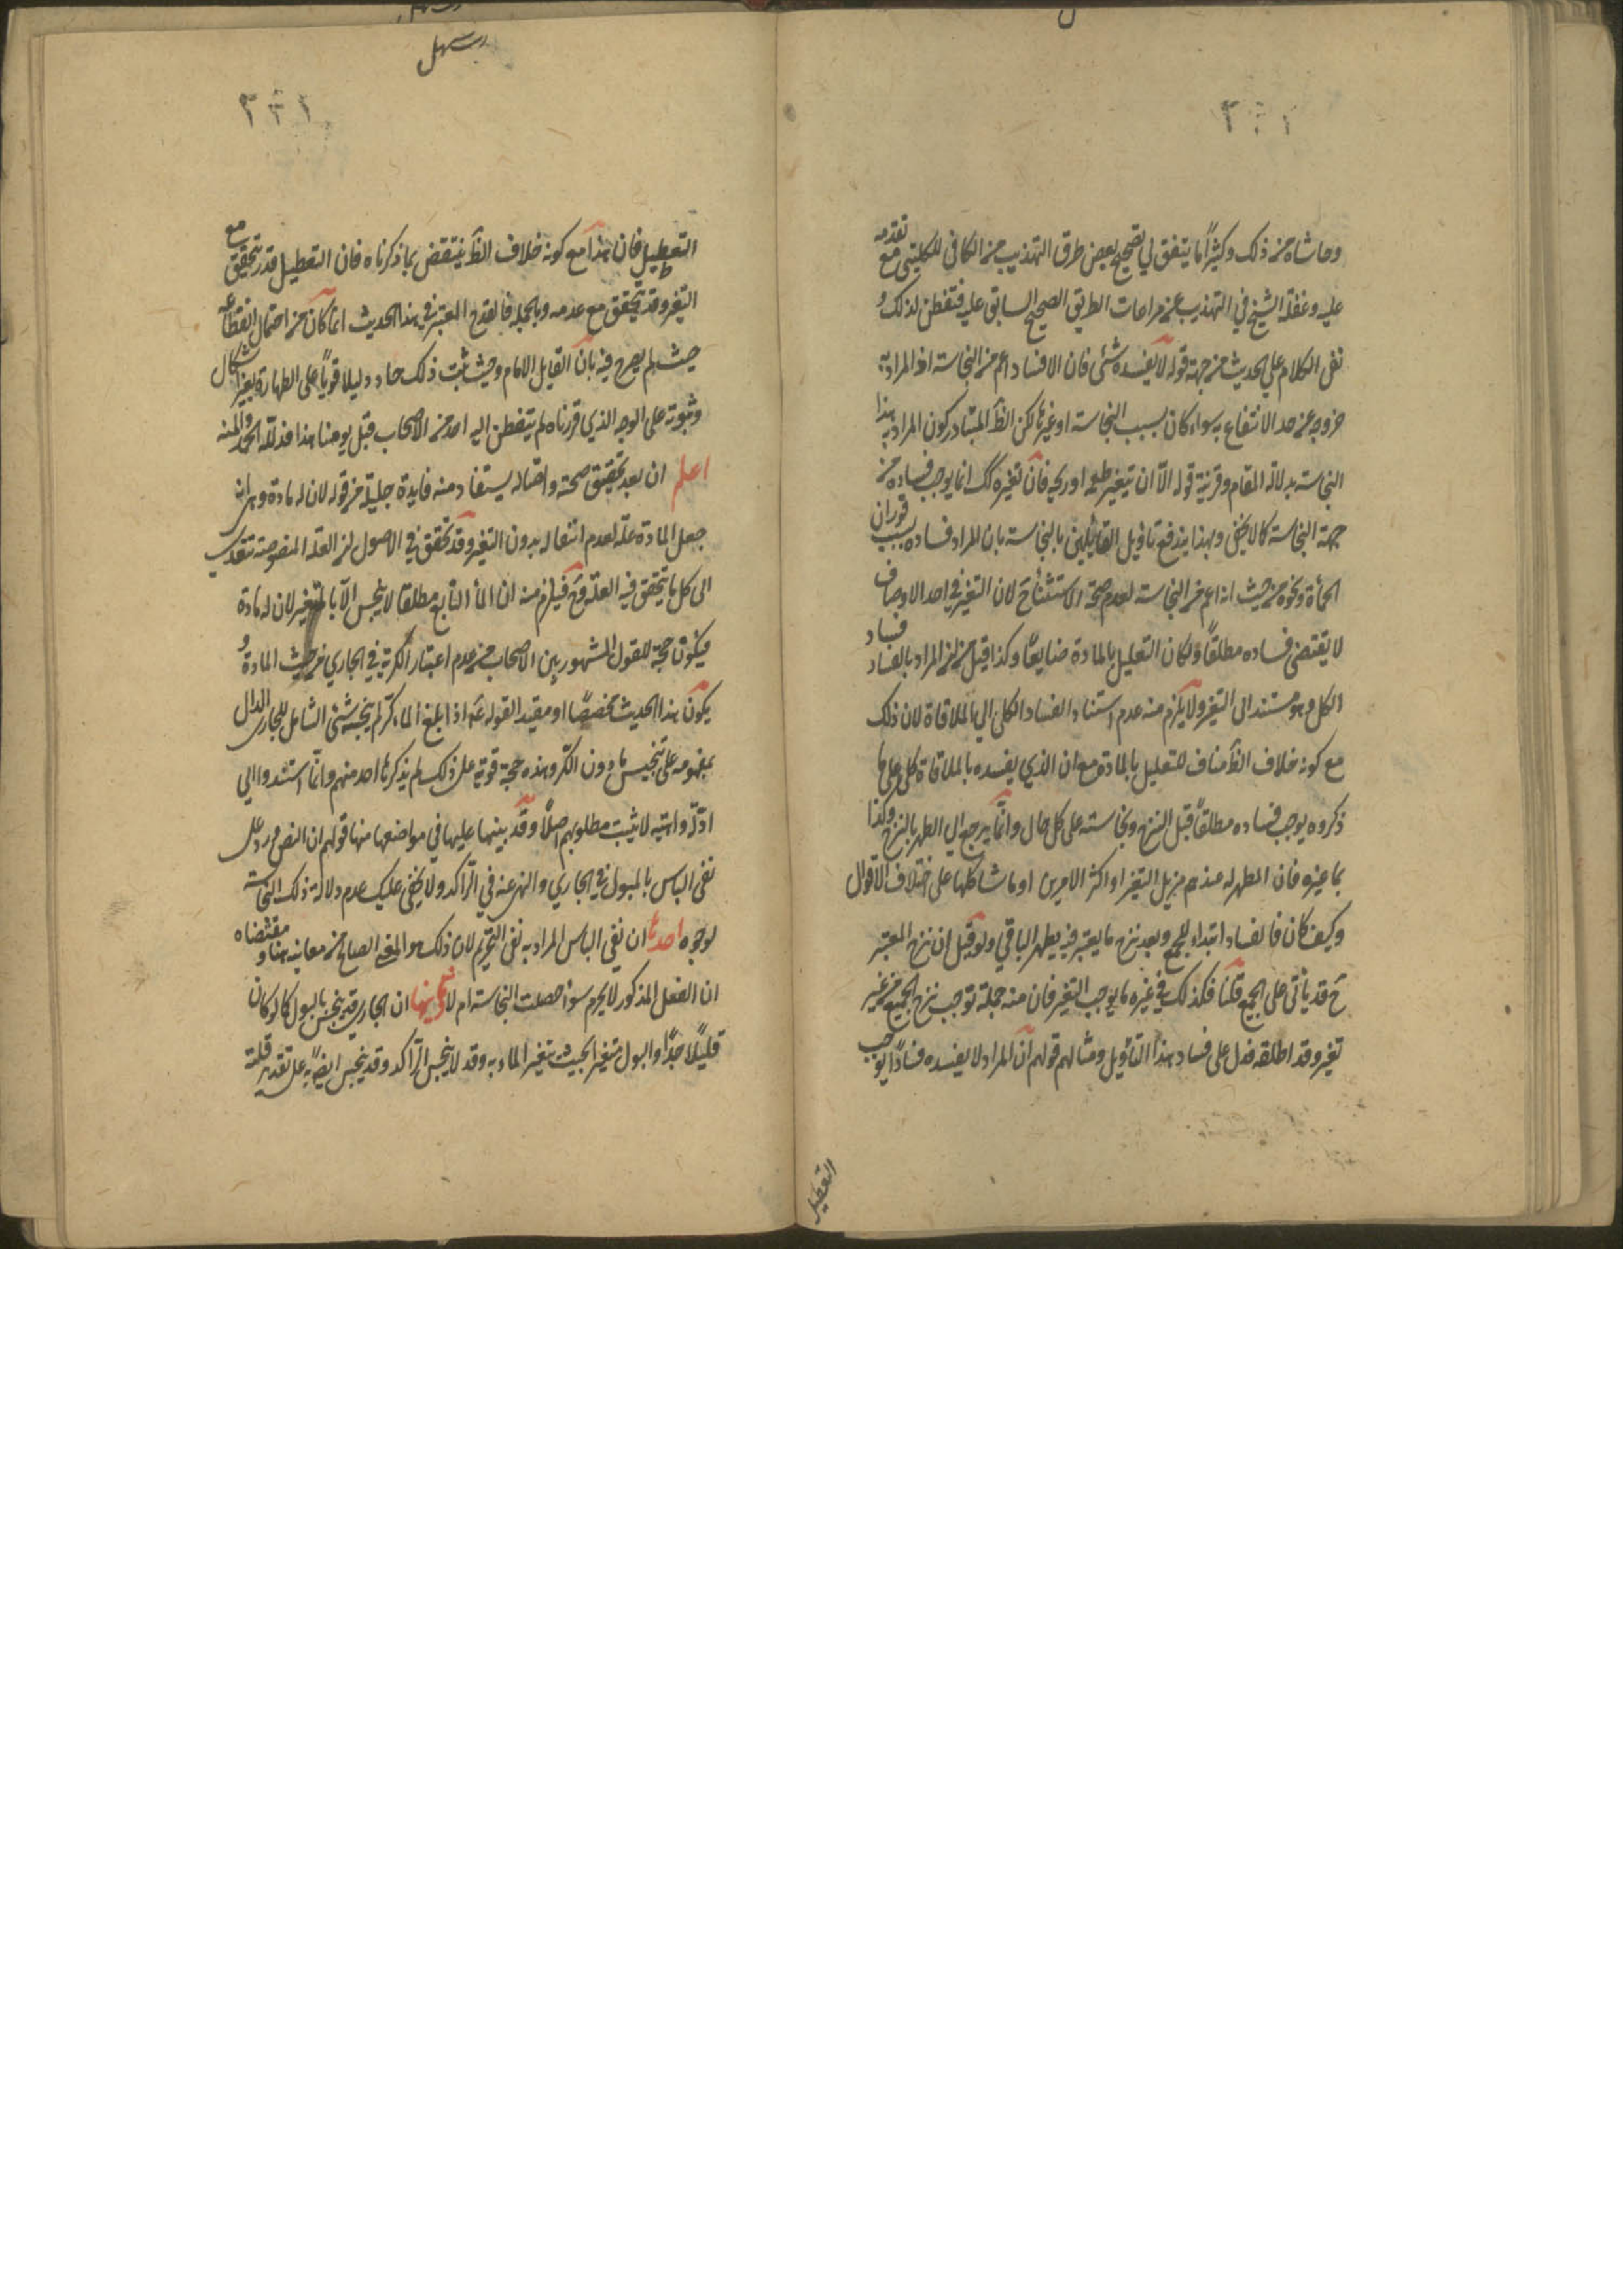 وحاشاه من ذلك وكثيراً ما يتفق لي تصحيح بعض طرق التهذيب من الكافي للكليني مع تقدمه
عليه وغفلة الشيخ في التهذيب عن مراعات الطريق الصحيح السابق عليه فتفطن لذلك و
نفى الكلام على الحديث من جهة قوله لا يفسده شئ فان الافساد اعم من النجاسة اذ المراد به
خروجه عن حد الانتفاع به سواء كان بسبب النجاسة او غيرها لكن الظ المتبادر كون المراد به هنا
النجاسة بدلالة المقام وقرينة قوله الا ان يتغير طعمه او ريحه فان تغيره كك انما يوجب فساده من
جهة النجاسة كما لا يخفى وبهذا يندفع تاويل القائلين بالنجاسة بان المراد فساده بسبب فوران
الحمأة ونحوه من حيث انه اعم من النجاسة لعدم صحة الاستثناء ح لان التغير في احد الاوصاف
لا يقتضي فساده مطلقاً ولكان التعليل بالمادة ضايعاً وكذا قيل من ان المراد بالفساد فساد
الكل وهو مستند الى التغير ولا يلزم منه عدم استناد الفساد الكلي الى الملاقاة لان ذلك
مع كونه خلاف الظ مناف للتعليل بالمادة ومع ان الذي يفسده بالملاقاة كلي على ما
ذكروه يوجب فساده مطلقاً قبل النزح ونجاسته على كل حال وانما يرجع الى الطهر بالنزح وكذا
بما غيره فان المطهر له عندهم مزيل التغير او اكثر الامرين او ما شاكلها على اختلاف الاقوال
وكيف كان فالفساد ابتداء للجميع وبعد نزح ما يعتبر فيه يطهر الباقي ولو قيل ان نزح المعتبر
ح قد ياتى على الجميع قلنا فكذلك في غيره ما يوجب التغير فان منه جملة توجب نزح الجميع من غير
تغير وقد اطلقه فدل على فساد هذا التأويل ومثالهم قولهم ان المراد لا يفسده فساداً يوجب
التعطيل
التعطيل فان هذا مع كونه خلاف الظ ينتقض بما ذكرناه فان التعطيل قد يتحقق مع
التغير وقد يتحقق مع عدمه وبالجملة فالقدح المعتبر في هذا الحديث انما كان من احتمال انقطاعه
حيث لم يصرح فيه بان القايل الامام وحيث ثبت ذلك صار دليلا قوياً على الطهارة بغير اشكال
وثبوته على الوجه الذي قررناه لم يتفطن اليه احد من الاصحاب قبل يومنا هذا فلله الحمد والمنه
اعلم ان بعد تحقيق صحته واتصاله يستفاد منه فايدة جليلة من قوله لان له مادة وهي ان
جعل المادة علة لعدم انفعاله بدون التغير وقد تحقق في الاصول ان العلة المنصوصة تتعدى
الى كل ما يتحقق فيه العلة فيلزم منه ان الماء النابع مطلقا لا ينجس الا بالتغير لان له مادة
فيكون حجة للقول المشهور بين الاصحاب من عدم اعتبار الكرية في الجاري من حيث المادة و
يكون هذا الحديث مخصصاً او مقيدا لقوله ع اذا بلغ الماء كراً لم ينجسه شئ الشامل للجاري الدال
بمفهومه على تنجيس ما دون الكر وهذه حجة قوية على ذلك لم يذكرها احد منهم وانما استندوا الى
ادلة واهية لا يثبت مطلوبهم اصلاً وقد بينها عليها في مواضعها منها قولهم ان النص ورد على
نفى الباس بالمبول في الجاري والنهى عنه في الراكد ولا يخفى عليك عدم دلالة ذلك النجاسة
لوجوه احدها ان نفى الباس المراد به نفى التحريم لان ذلك هو المعنى الصالح من معانيه هنا ومقتضاه
ان الفعل المذكور لا يحرم سواء حصلت النجاسة ام لا وثانيها ان الجاري قد ينجس بالبول كما لو كان
قليلاً جداً والبول متغير بحيث يتغير الماء به وقد لا ينجس الراكد وقد ينجس ايضاً به على تقدير قلته